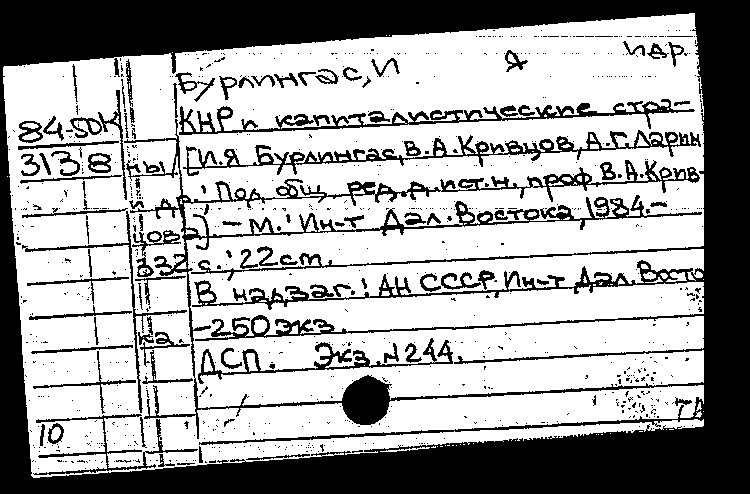 Бурлингас, И Я и др.
84-5ДК КНР и капиталистические стра-
3138 ны/[И.Я Бурлингас, В.А.Кривцов, А.Г.Ларин
и др.; Под общ ред. д.ист.н., проф В.А.Крив-
цова]. - М.: Ин-т Дал.Востока, 1984.-
332 с.; 22 см.
В надзаг.: АН СССР, Ин-т Дал.Восто
ка. -250 экз.
ДСП. Экз.№244.
10